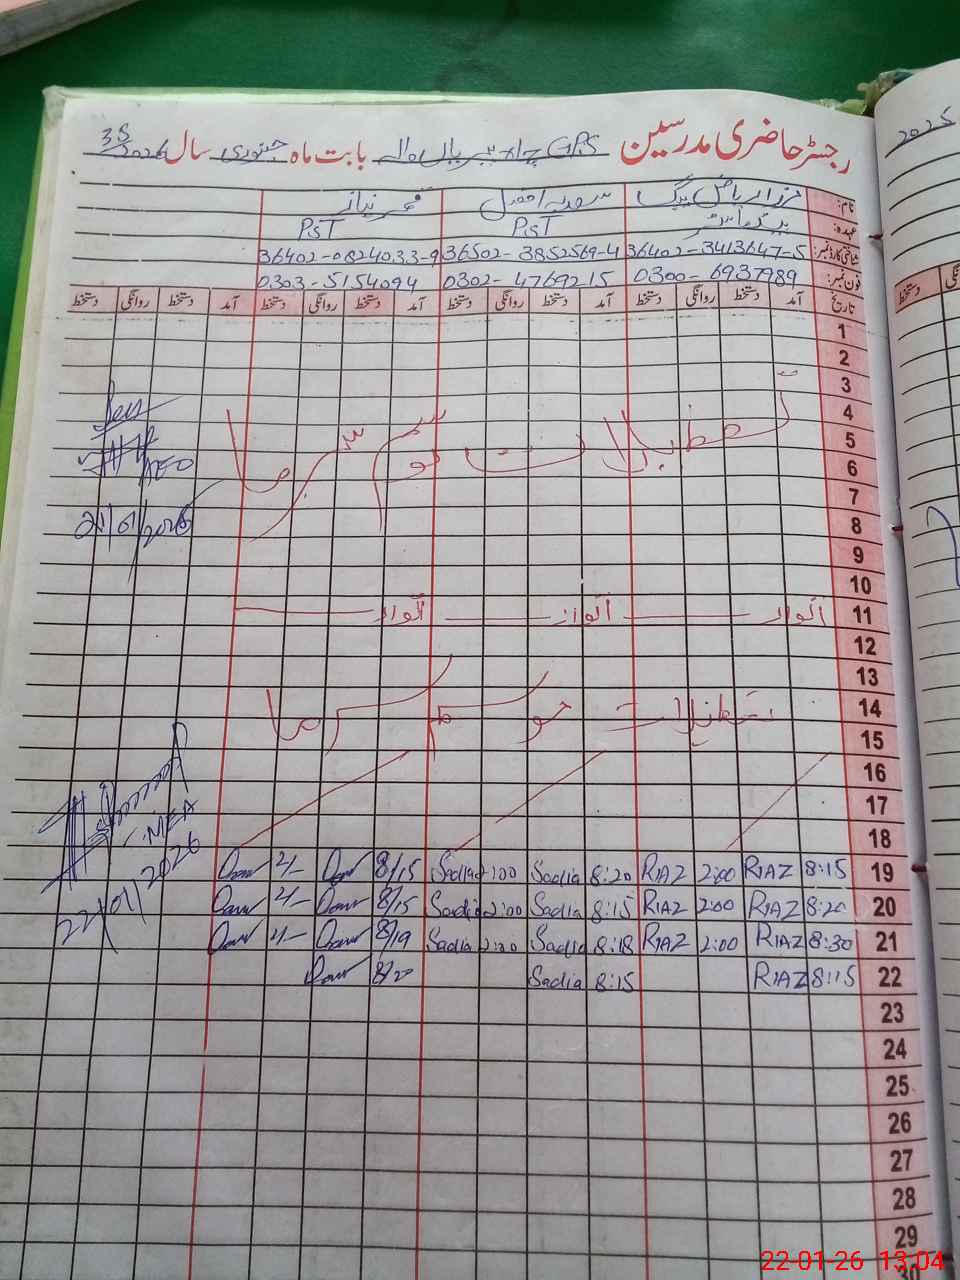 رجسٹر حاضری مدرسین GPS چاہ بیریاں والہ بابت ماہ جنوری سال 2026
نام: مرزا ریاض بیگ سعدیہ افضل عمر نیاز
عہدہ: ہیڈ ماسٹر PST PST
شناختی کارڈ نمبر: 36402-3413647-5 36502-3852569-4 36402-0824033-9
فون نمبر: 0300-6937989 0302-4769215 0303-5154094
تاریخ آمد دستخط روانگی دستخط آمد دستخط روانگی دستخط آمد دستخط روانگی دستخط آمد دستخط روانگی دستخط
1
2
3
4
تعطیلات موسم سرما
5
6
AEO
7
8
21/01/2026
9
10
11 اتوار اتوار اتوار
12
13
14
تعطیلات موسم سرما
15
16
17
MEA
18
22/01/2026
19 8:15 RIAZ 2:00 RIAZ 8:20 Sadia 2:00 Sadia 8/15 2/-
20 8:20 RIAZ 2:00 RIAZ 8:15 Sadia 2:00 Sadia 8/15 2/-
21 8:30 RIAZ 2:00 RIAZ 8:18 Sadia 2:00 Sadia 8/19 2/-
22 8:15 RIAZ 8:15 Sadia 8/20
23
24
25
26
27
28
29
30
2025
دستخط
22-01-26 13:04